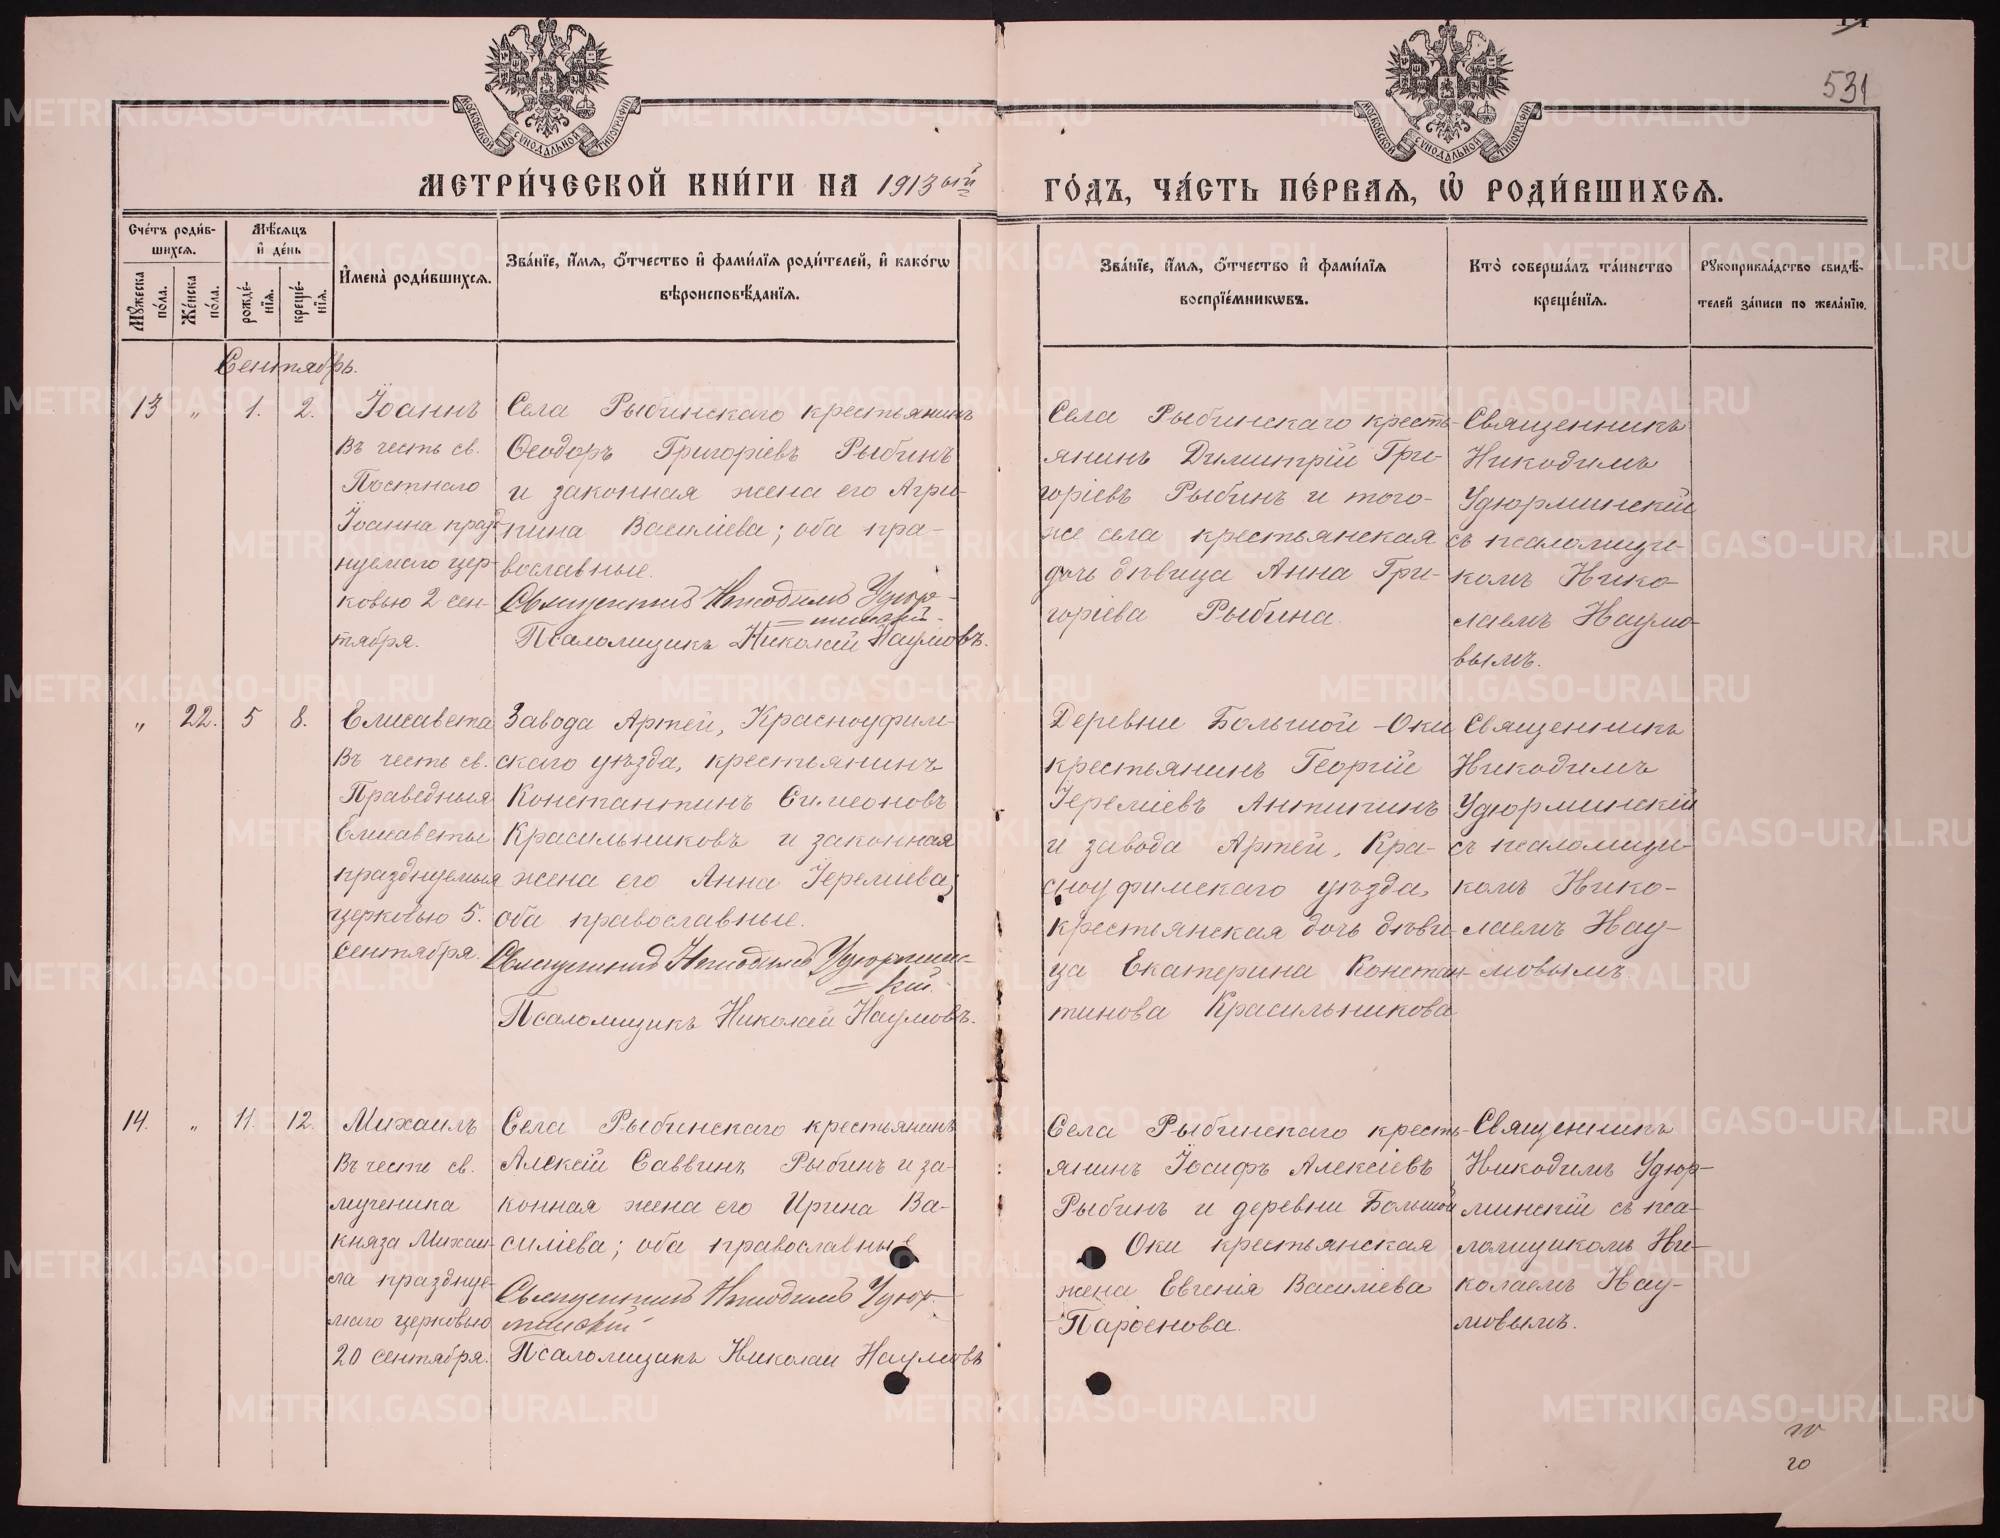 531
МОСКОВСКОЙ СѴНОДАЛЬНОЙ ТИПОГРАФІИ
МОСКОВСКОЙ СѴНОДАЛЬНОЙ ТИПОГРАФІИ
МЕТРИ́ЧЕСКОЙ КНИ́ГИ НА 1913ый ГО́ДЪ, ЧА́СТЬ ПЕ́РВАЯ, Ѡ РОДИ́ВШИХСЯ.
Сче́тъ роди́в-
шихся.
Мꙋ́жеска по́ла.
Же́нска по́ла.
Мѣ́сяцъ
и҆ де́нь
рожде́-
нїя.
креще́-
нїя.
И҆мена̀ роди́вшихся.
Зва́нїе, и҆́мя, ѻ҆́тчество и҆ фами́лїя роди́телей, и҆ како́гѡ
вѣроисповѣ́данїя.
Зва́нїе, и҆́мя, ѻ҆́тчество и҆ фами́лїя
воспрїе́мникѡвъ.
Кто̀ соверша́лъ та́инство
креще́нїя.
Рꙋкоприкла́дство свидѣ́-
телей за́писи по жела́нїю.
Сентябрь.
13
"
1.
2.
Іоаннъ
Въ честь св.
Постнаго
Іоанна празд-
нуемаго цер-
ковью 2 сен-
тября.
Села Рыбинскаго крестьянинъ
Ѳеодоръ Григоріевъ Рыбинъ
и законная жена его Агри-
пина Василіева; оба пра-
вославные.
Священникъ Никодимъ Удюр-
минскій.
Псаломщикъ Николай Наумовъ.
Села Рыбинскаго кресть-
янинъ Димитрій Гри-
горіевъ Рыбинъ и того-
же села крестьянская
дочь дѣвица Анна Гри-
горіева Рыбина.
Священникъ
Никодимъ
Удюрминскій
съ псаломщи-
комъ Нико-
лаемъ Наумо-
вымъ.
"
22.
5
8.
Елисавета
Въ честь св.
Праведныя
Елисаветы
празднуемыя
церковью 5.
сентября.
Завода Артей, Красноуфим-
скаго уѣзда, крестьянинъ
Константинъ Симеоновъ
Красильниковъ и законная
жена его Анна Іереміева;
оба православные.
Священникъ Никодимъ Удюрминс-
кій.
Псаломщикъ Николай Наумовъ.
Деревни Большой-Оки
крестьянинъ Георгій
Іереміевъ Антипинъ
и завода Артей, Кра-
сноуфимскаго уѣзда,
крестьянская дочь дѣви-
ца Екатерина Констан-
тинова Красильникова
Священникъ
Никодимъ
Удюрминскій
съ псаломщи-
комъ Нико-
лаемъ Нау-
мовымъ
14.
"
11.
12.
Михаилъ
Въ честь св.
мученика
князя Михаи-
ла празднуе-
маго церковью
20 сентября.
Села Рыбинскаго крестьянинъ
Алексій Саввинъ Рыбинъ и за-
конная жена его Ирина Ва-
силіева; оба православные
Священникъ Никодимъ Удюр-
минскій
Псаломщикъ Николай Наумовъ
Села Рыбинскаго кресть-
янинъ Іосифъ Алексіевъ
Рыбинъ и деревни Большой
Оки крестьянская
жена Евгенія Василіева
Парѳенова.
Священникъ
Никодимъ Удюр-
минскій съ пса-
ломщикомъ Ни-
колаемъ Нау-
мовымъ.
20
METRIKI.GASO-URAL.RU